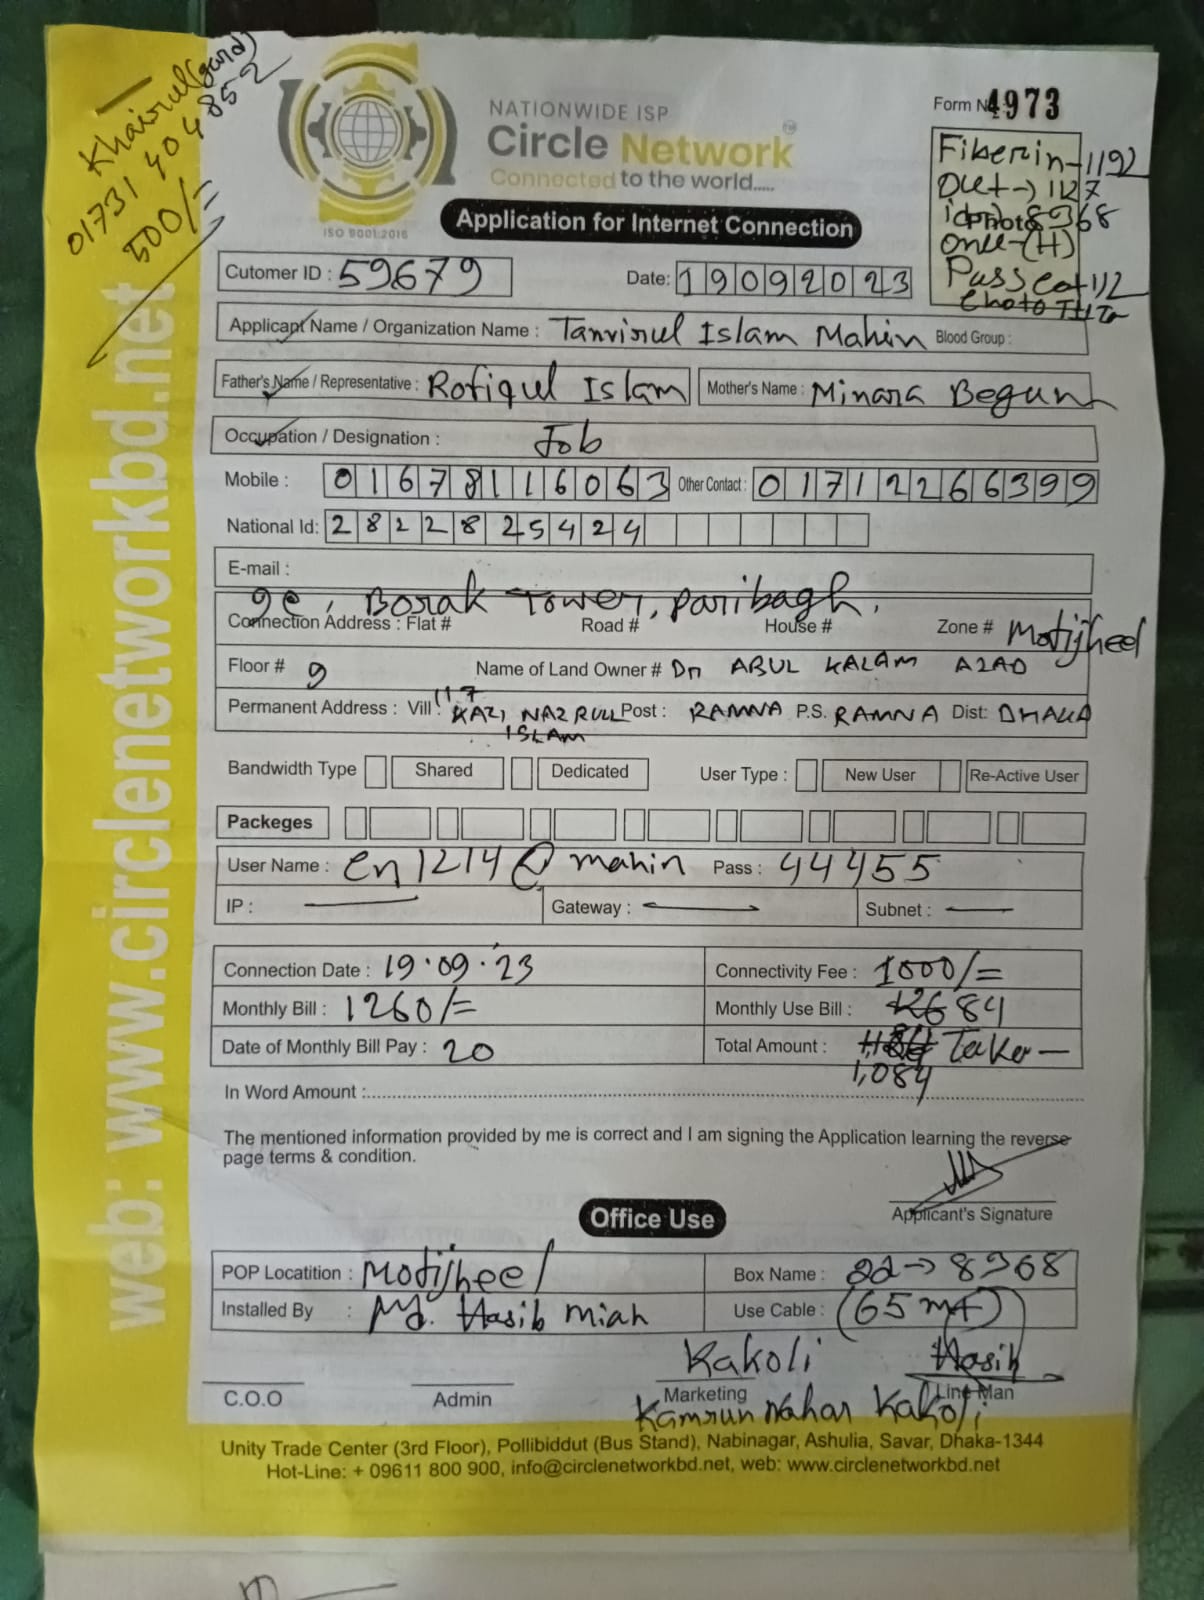 Khairul (gard)
01731 404852
500/=
web: www.circlenetworkbd.net
NATIONWIDE ISP
Circle Network
Connected to the world.....
ISO 9001:2015
Form N 4973
Fiberin-1192
Out→1127
8968
onu-(H)
Application for Internet Connection
Cutomer ID : 59679
Date: 19092023
Applicant Name / Organization Name : Tanvirul Islam Mahin Blood Group :
Father's Name / Representative : Rofiqul Islam Mother's Name : Minara Begum
Occupation / Designation : Job
Mobile : 01678116063 Other Contact : 01712266399
National Id: 2822825424
E-mail :
9e, Borak Tower, Paribagh,
Connection Address : Flat # Road # House # Zone # Motijheel
Floor # 9 Name of Land Owner # Dr ABUL KALAM AZAD
Permanent Address : Vill : 117 KAZI NAZRULL ISLAM Post : RAMNA P.S. RAMNA Dist: DHAKA
Bandwidth Type Shared Dedicated User Type : New User Re-Active User
Packeges
User Name : en1214@mahin Pass : 44455
IP : Gateway : Subnet :
Connection Date : 19.09.23 Connectivity Fee : 1000/=
Monthly Bill : 1260/= Monthly Use Bill : 84
Date of Monthly Bill Pay : 20 Total Amount : Taka—
1,084
In Word Amount :
The mentioned information provided by me is correct and I am signing the Application learning the reverse
page terms & condition.
Applicant's Signature
Office Use
POP Locatition : Motijheel Box Name : 8968
Installed By : Md. Hasib Miah Use Cable : (65 mt)
Kakoli Hasib
C.O.O Admin Marketing Line Man
Kamrun Nahar Kakoli
Unity Trade Center (3rd Floor), Pollibiddut (Bus Stand), Nabinagar, Ashulia, Savar, Dhaka-1344
Hot-Line: + 09611 800 900, info@circlenetworkbd.net, web: www.circlenetworkbd.net